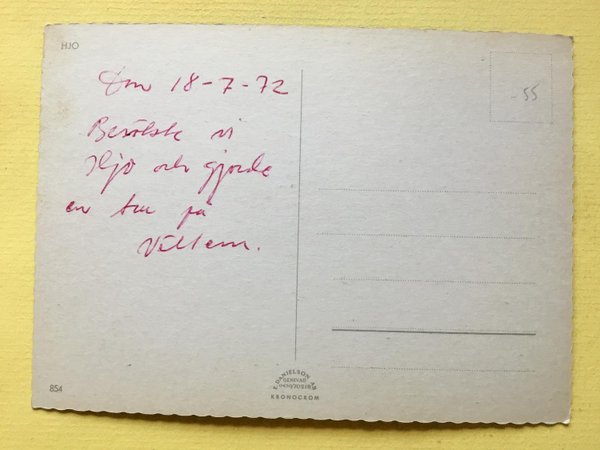 HJO
Den 18-7-72
Besökte vi
Hjo och gjorde
en tur på
Vättern.
-55
854
E. DANIELSON AB
KRONOCROM